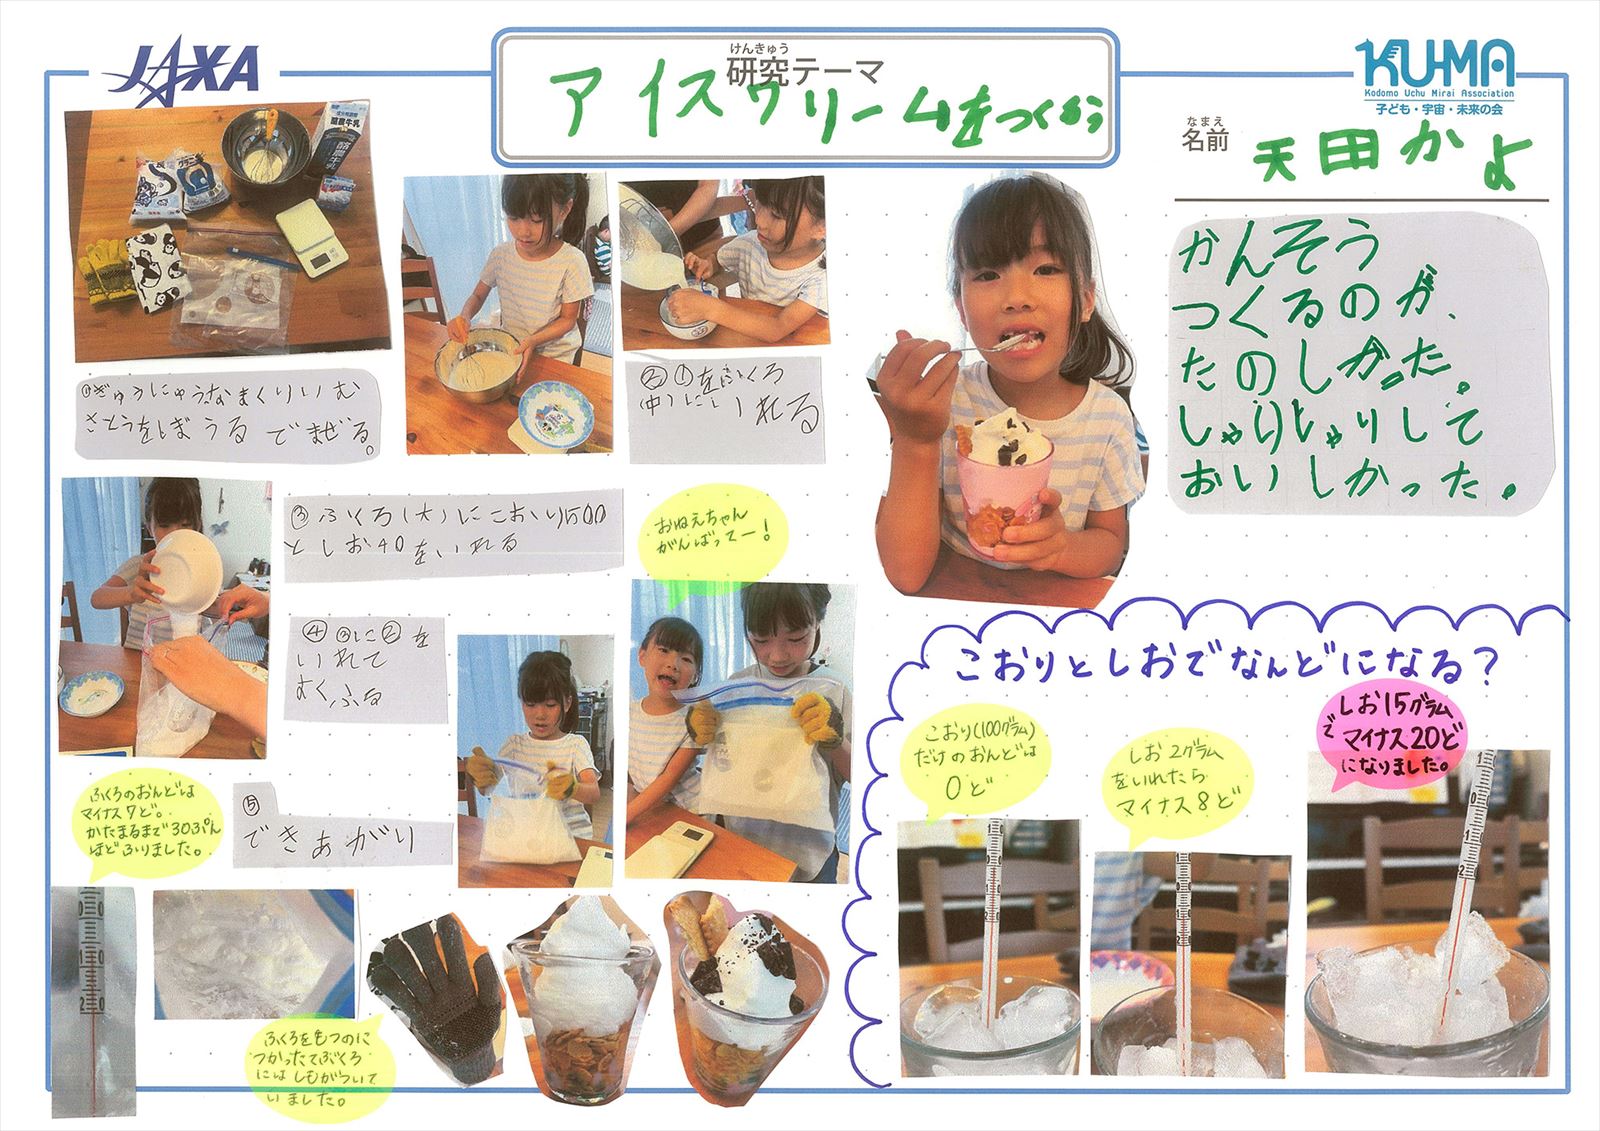 JAXA
けんきゅう
研究テーマ
アイスクリームをつくろう
KU-MA
Kodomo Uchu Mirai Association
子ども・宇宙・未来の会
なまえ
名前
天田かよ
かんそう
つくるのが、
たのしかった。
しゃりしゃりして
おいしかった。
①ぎゅうにゅうなまくりいむ
さとうをぼうるでまぜる。
②①をふくろ
(中)にいれる
③ふくろ(大)にこおり1500
としお40をいれる
④③に②を
いれて
よくふる
おねえちゃん
がんばってー!
ふくろのおんどは
マイナス7ど。
かたまるまで30ぷん
ほどふりました。
⑤
できあがり
ふくろをもつのに
つかったてぶくろ
にはしもがついて
いました。
こおりとしおでなんどになる?
こおり(100グラム)
だけのおんどは
0ど
しお2グラム
をいれたら
マイナス8ど
しお15グラム
でマイナス20ど
になりました。